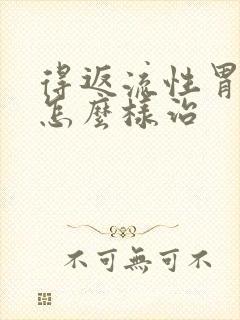 得返流性胃
怎麼樣治
不可無可不